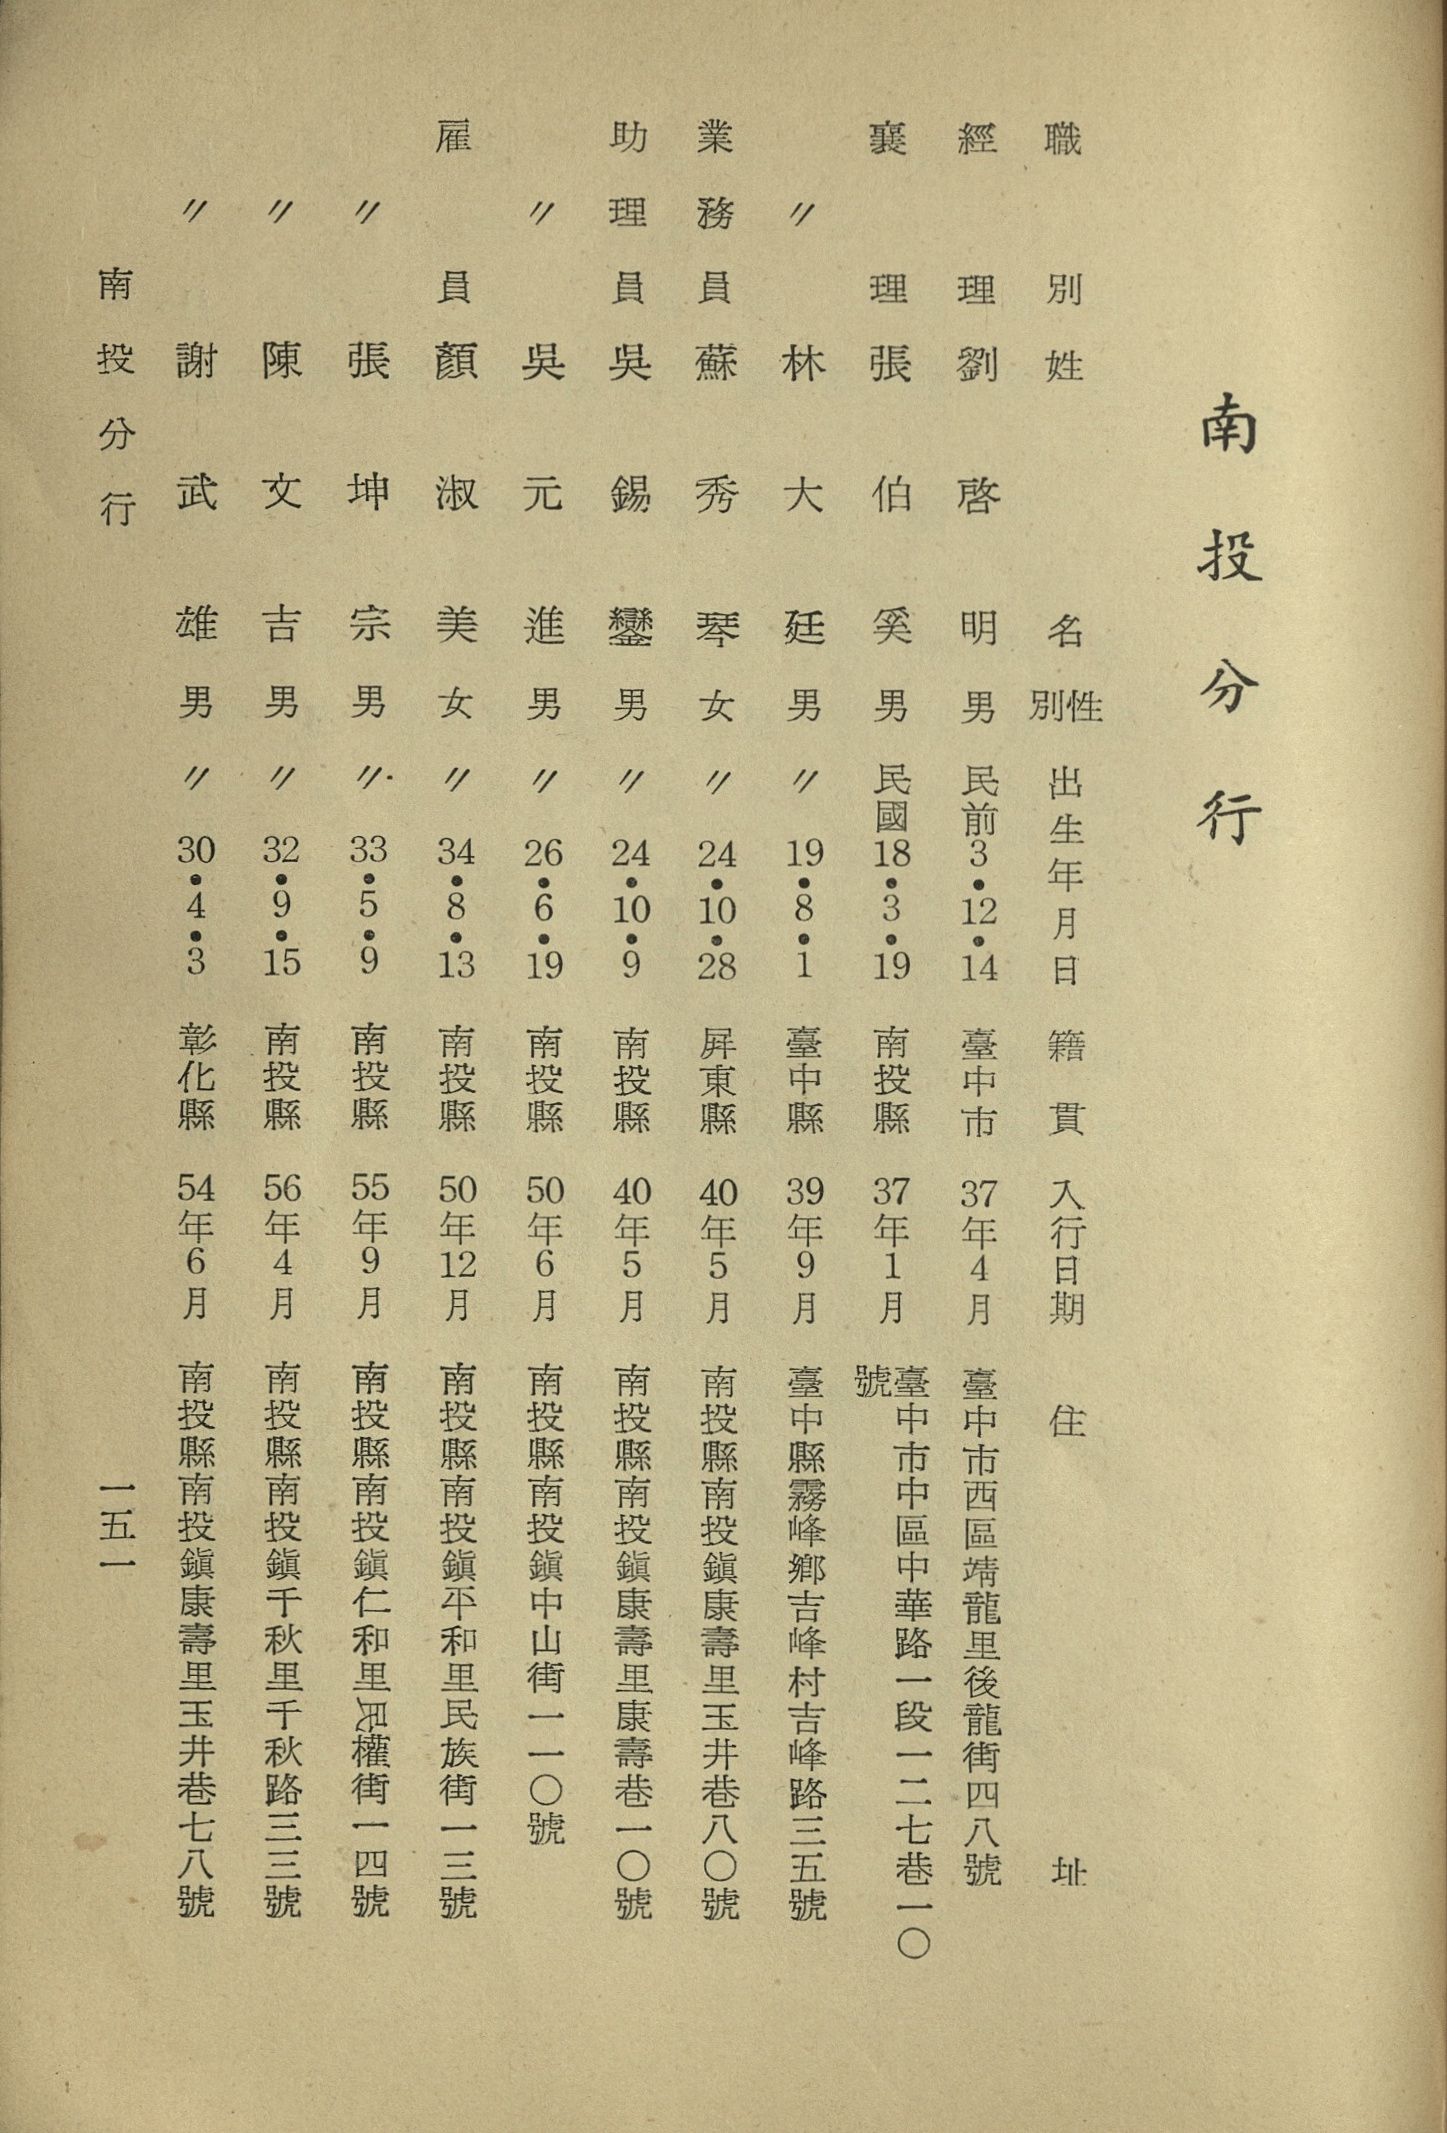 南投分行
職別 姓名 性別 出生年月日 籍貫 入行日期 住址
經理 劉啓明 男 民前3•12•14 臺中市 37年4月 臺中市西區靖龍里後龍街四八號
襄理 張伯奚 男 民國18•3•19 南投縣 37年1月 臺中市中區中華路一段一二七巷一〇號
〃 林大廷 男 〃19•8•1 臺中縣 39年9月 臺中縣霧峰鄉吉峰村吉峰路三五號
業務員 蘇秀琴 女 〃24•10•28 屏東縣 40年5月 南投縣南投鎭康壽里玉井巷八〇號
助理員 吳錫鑾 男 〃24•10•9 南投縣 40年5月 南投縣南投鎭康壽里康壽巷一〇號
〃 吳元進 男 〃26•6•19 南投縣 50年6月 南投縣南投鎭中山街一一〇號
雇員 顏淑美 女 〃34•8•13 南投縣 50年12月 南投縣南投鎭平和里民族街一三號
〃 張坤宗 男 〃33•5•9 南投縣 55年9月 南投縣南投鎭仁和里民權街一四號
〃 陳文吉 男 〃32•9•15 南投縣 56年4月 南投縣南投鎭千秋里千秋路三三號
〃 謝武雄 男 〃30•4•3 彰化縣 54年6月 南投縣南投鎭康壽里玉井巷七八號
南投分行 一五一